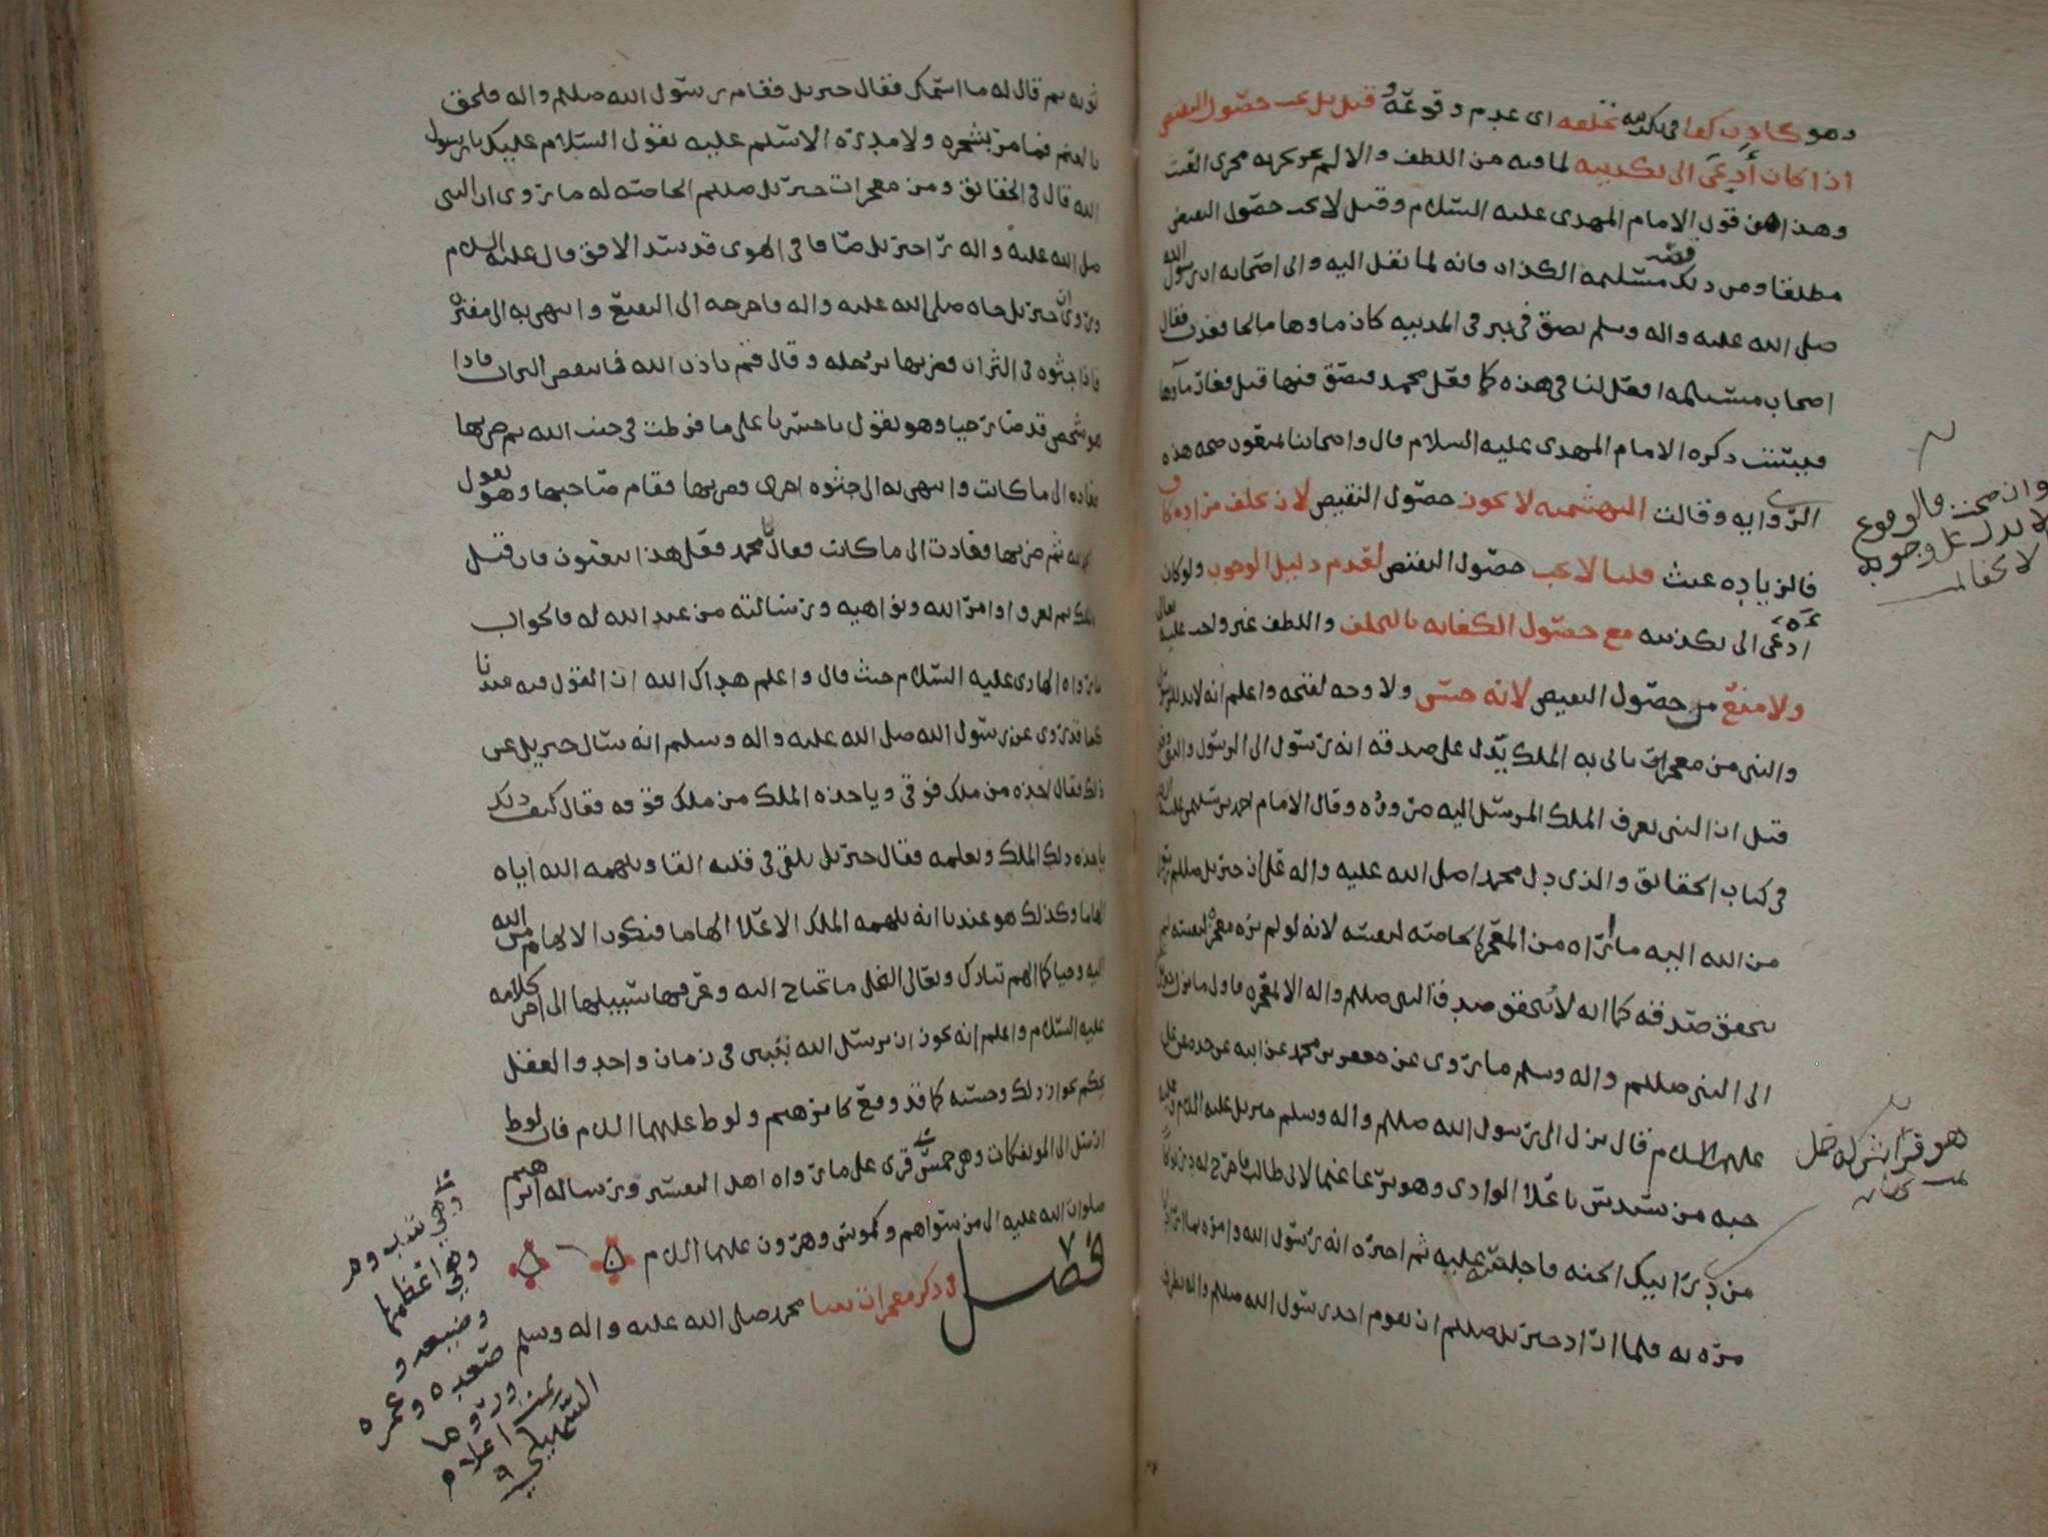 وهو كاذب كفا في تكذيبه تخلفه اي عدم وقوعه قيل بل يجب حصول النقيض
اذا كان أدعى الى تكذيبه لما فيه من اللطف والا لم يجر مجرى
وهذا هو قول الامام المهدي عليه السلام وقيل لا يجب حصول النقيض
مطلقا ومن ذلك قصة مسيلمة الكذاب فانه لما نقل اليه والى اصحابه ان رسول الله
صلى الله عليه واله وسلم بصق في بير في المدينه كان ماوها مالحا فعذب فقال
اصحاب مسيلمه افعل لنا في هذه كما فعل محمد فبصق فيها قيل فغار مآوها
فيبست ذكره الامام المهدي عليه السلام قال واصحابنا يمنعون صحه هذه
الروايه وقالت البهشميه لا يجوز حصول النقيض لان تخلف مراده كاف
فالزياده عبث قلنا لا يجب حصول النقيض لعدم دليل الوجوب ولو كان
ادعى الى تكذيبه مع حصول الكفايه بالتخلف واللطف غير واجب عليه تعالى
ولا منع من حصول النقيض لانه حسن ولا وجه لقبحه واعلم انه لابد للرسول
والنبي من معجزات ياتي به الملك يدل على صدقه انه رسول الى الرسول والنبي
قيل ان النبي يعرف الملك المرسل اليه ضروره وقال الامام احمد بن سليمن عليه
في كتاب الحقائق والذي دل محمدا صلى الله عليه واله على ان جبريل صللم رسول
من الله اليه ما أراه من المعجز الخاصه لنفسه لانه لو لم يره معجزة لنفسه لم
يتحقق صدقه كما انه لا يتحقق صدق النبي صللم واله الا لمعجزه فاول ما نزل جبريل
الى النبي صللم واله وسلم ما روي عن جعفر بن محمد عن ابيه عن جده عن علي
عليهم السلام قال نزل الى رسول الله صللم واله وسلم جبريل عليه السلام وعليه
جبه من سندس باعلا الوادي وهو يرعا غنما لابي طالب فاخرج له درنوكا
من درانيك الجنه فاجلسه عليه ثم اخبره انه رسول الله وامره بما اراد
مره به فلما اراد جبريل صللم ان يقوم اخذ رسول الله صللم واله بطرف
وان صحت فالوقوع
لا يدل على وجوبه
لا يخفا
هو فراش له خمل
ثوبه ثم قال له ما اسمك فقال جبريل فقام رسول الله صللم واله فلحق
بالغنم فما مر بشجره ولا مدره الا سلم عليه يقول السلام عليك يا رسول
الله قال في الحقائق ومن معجزات جبريل صللم الخاصه له ما روي ان النبي
صلى الله عليه واله را جبريل صافا في الهوى قد سد الافق قال عليه السلام
وروي ان جبريل جاه صلى الله عليه واله فاخرجه الى البقيع وانتهى به الى مقبره
فاذا جثوه في التراب فضربها برجله وقال قم باذن الله فانتفض التراب فاذا
هو شخص قد صار حيا وهو يقول يا حسرتا على ما فرطت في جنب الله ثم ضربها
فعاده الى ما كانت وانتهى به الى جثوه اخرى فضربها فقام صاحبها وهو يقول
الحمد لله ثم ضربها فعادت الى ما كانت فقال يا محمد فعلى هذا يبعثون فان قيل
الملك بم يعرف اوامر الله ونواهيه ورسالته من عند الله له فالجواب
ما رواه الهادي عليه السلام حيث قال واعلم هداك الله ان القول فيه عندنا
كما قد روي عن رسول الله صلى الله عليه واله وسلم انه سال جبريل عن
ذلك فقال اخذه من ملك فوقي وياخذه الملك من ملك فوقه فقال كيف ذلك
ياخذه ذلك الملك ويعلمه فقال جبريل يلقى في قلبه القا ويلهمه الله اياه
الهاما وكذلك هو عندنا انه يلهمه الملك الاعلا الهاما فيكون الالهام من الله
اليه وحيا كما الهم تبارك وتعالى النحل ما تحتاج اليه وعرفها سبيلها الى اخر كلامه
عليه السلام واعلم انه يجوز ان يرسل الله نبيين في زمان واحد والعقل
يحكم بجواز ذلك وحسنه كما قد وقع كابرهيم ولوط عليهما السلام فان لوط
ارسل الى المؤتفكات وهي خمس قرى على ما رواه اهل التفسير ورساله ابرهيم
صلوات الله عليه الى من سواهم وكموسى وهرون عليهما السلام
فصل في ذكر معجزات نبينا محمد صلى الله عليه واله وسلم
وهي اعظمها
وصعده وعمره
اعلام
السهيلي